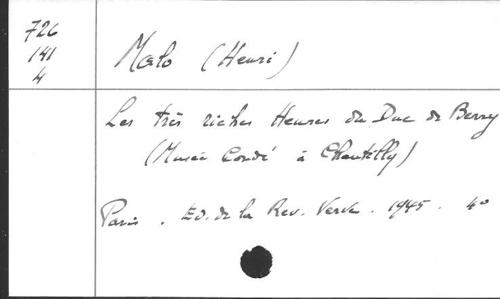 726
141
4
Malo (Henri)
Les très riches Heures du Duc de Berry
(Musée Condé à Chantilly)
Paris . Ed. de la Rev. Verve . 1945 . 4°